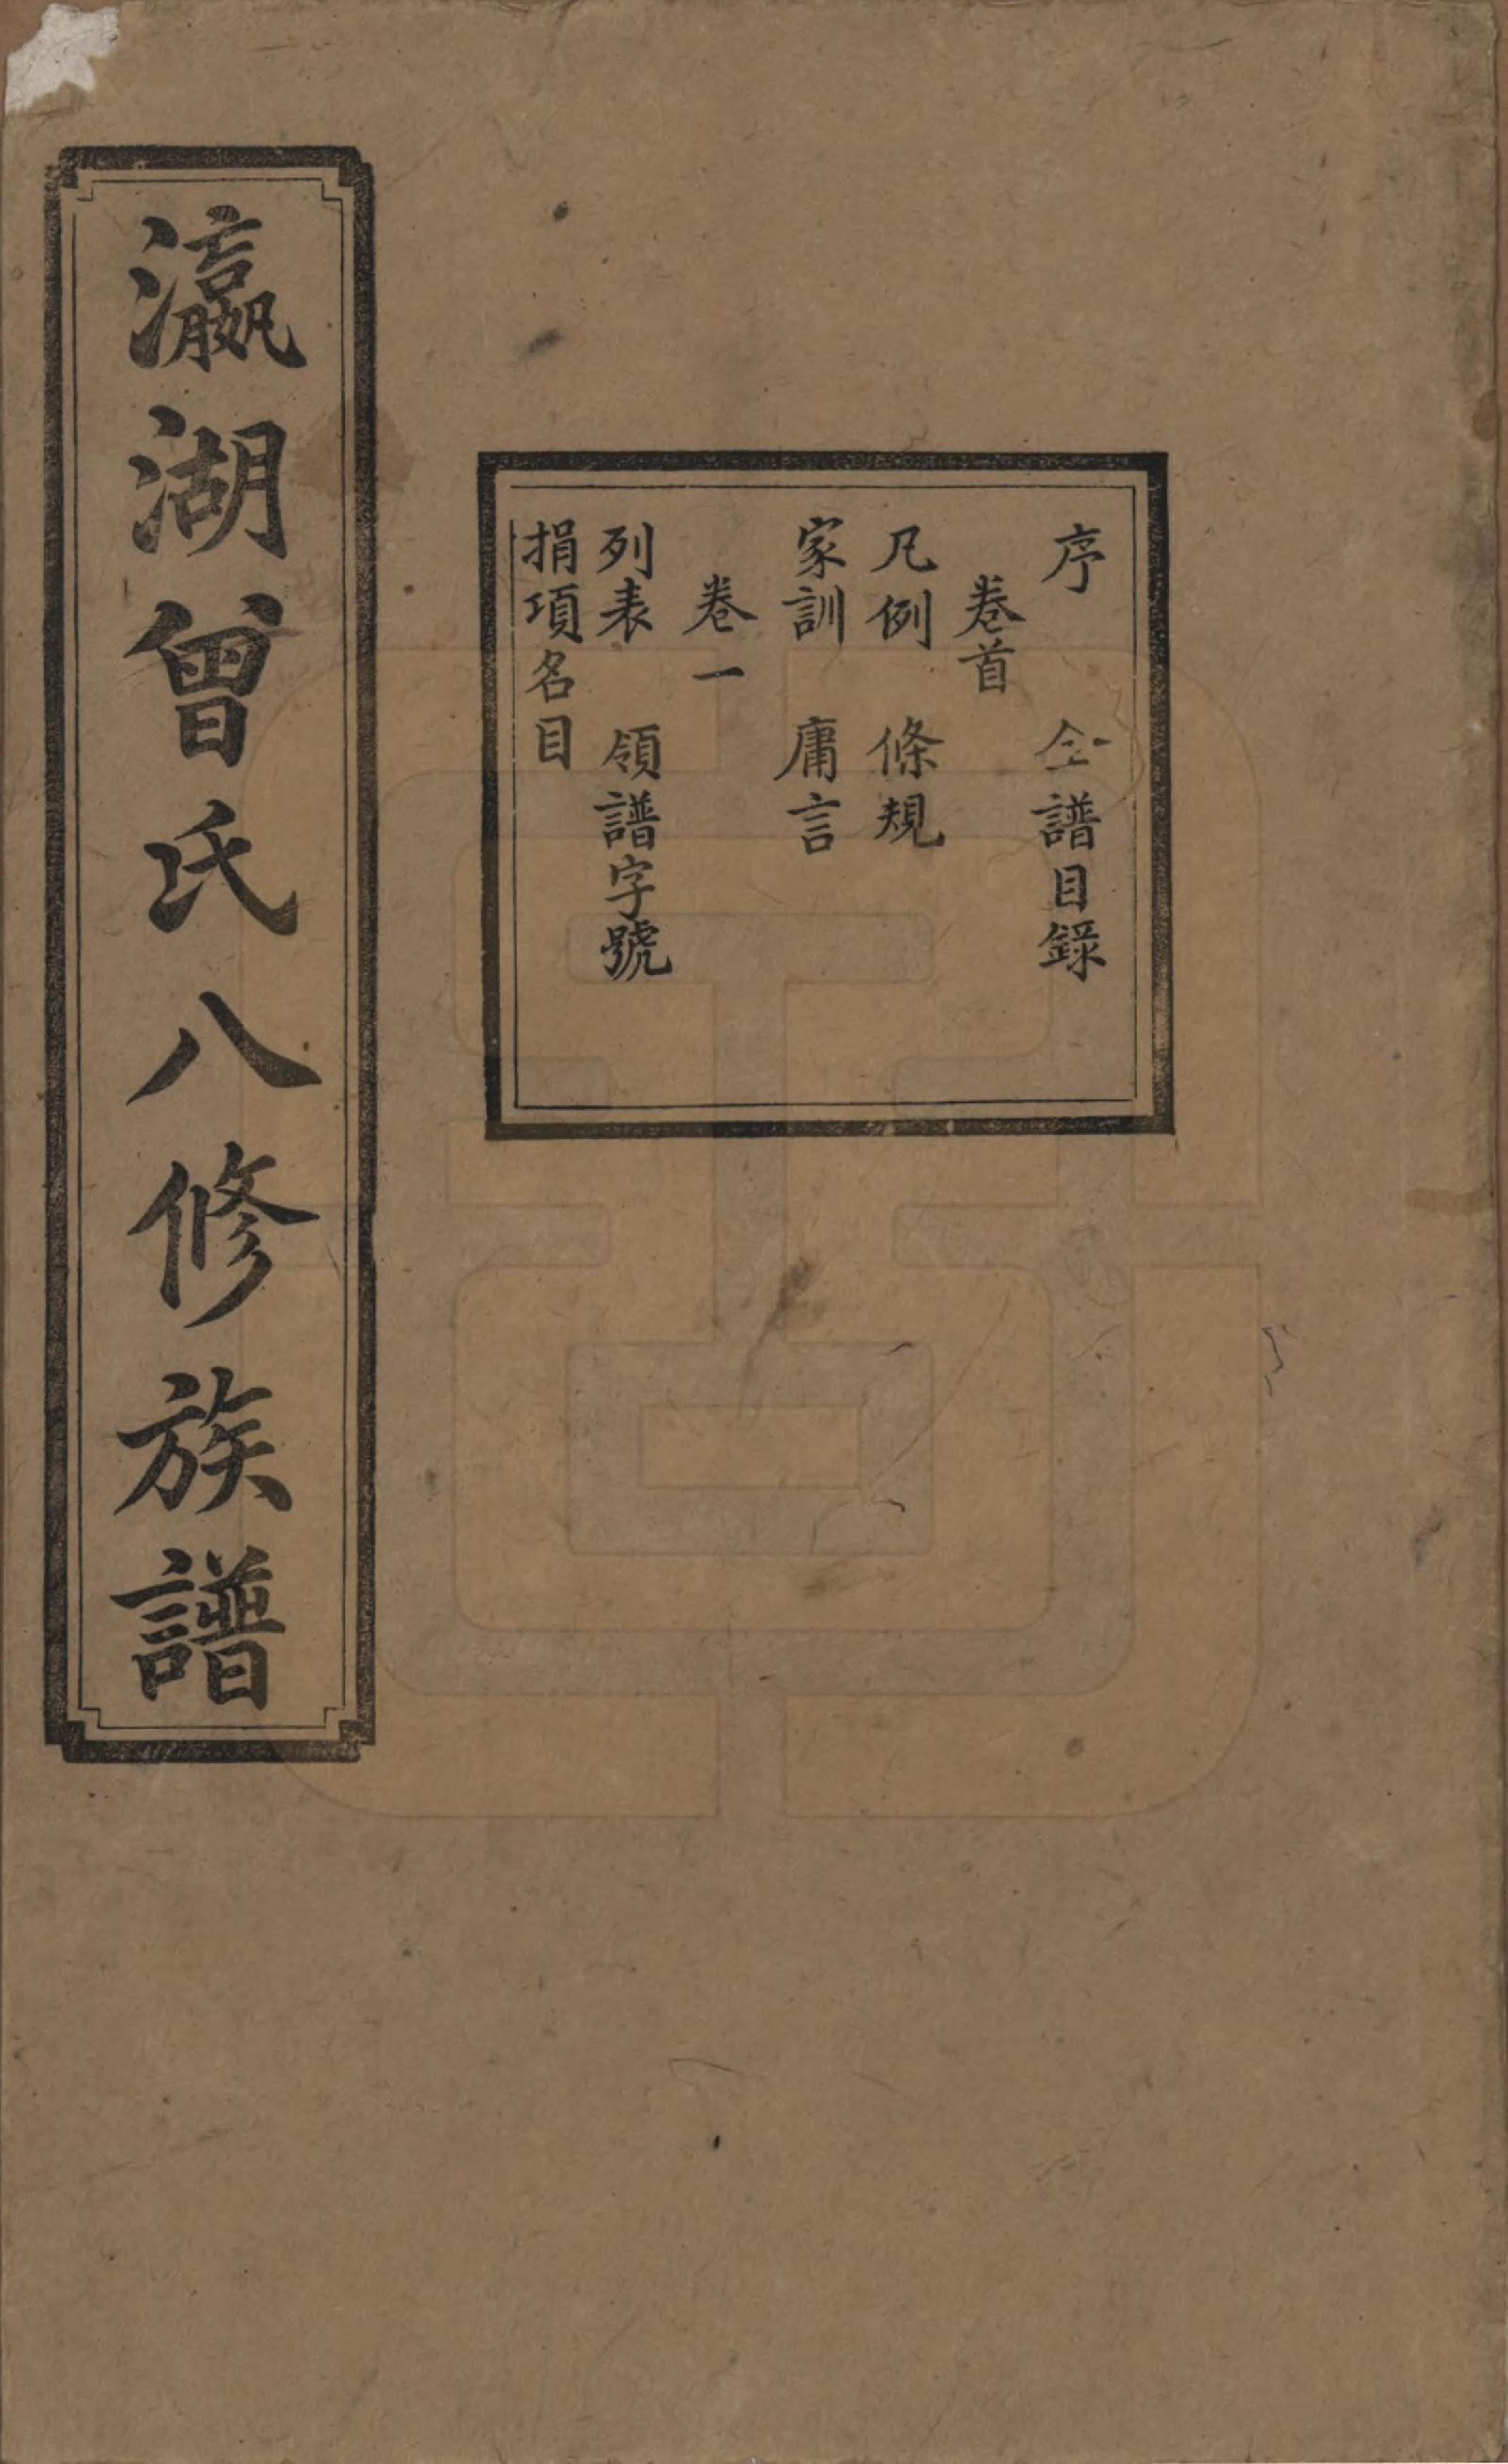 瀛湖曾氏八修族譜
序　仝譜目錄
卷首
凡例　條規
家訓　庸言
卷一
列表　領譜字號
捐項名目